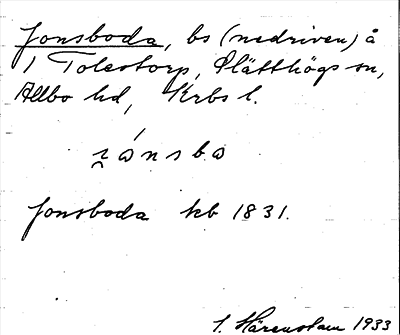 Jonsboda, bs (nedriven) å
1 Tolestorp, Slätthögs sn,
Allbo hd, Krbs l.
Jonsboda kb 1831.
1933